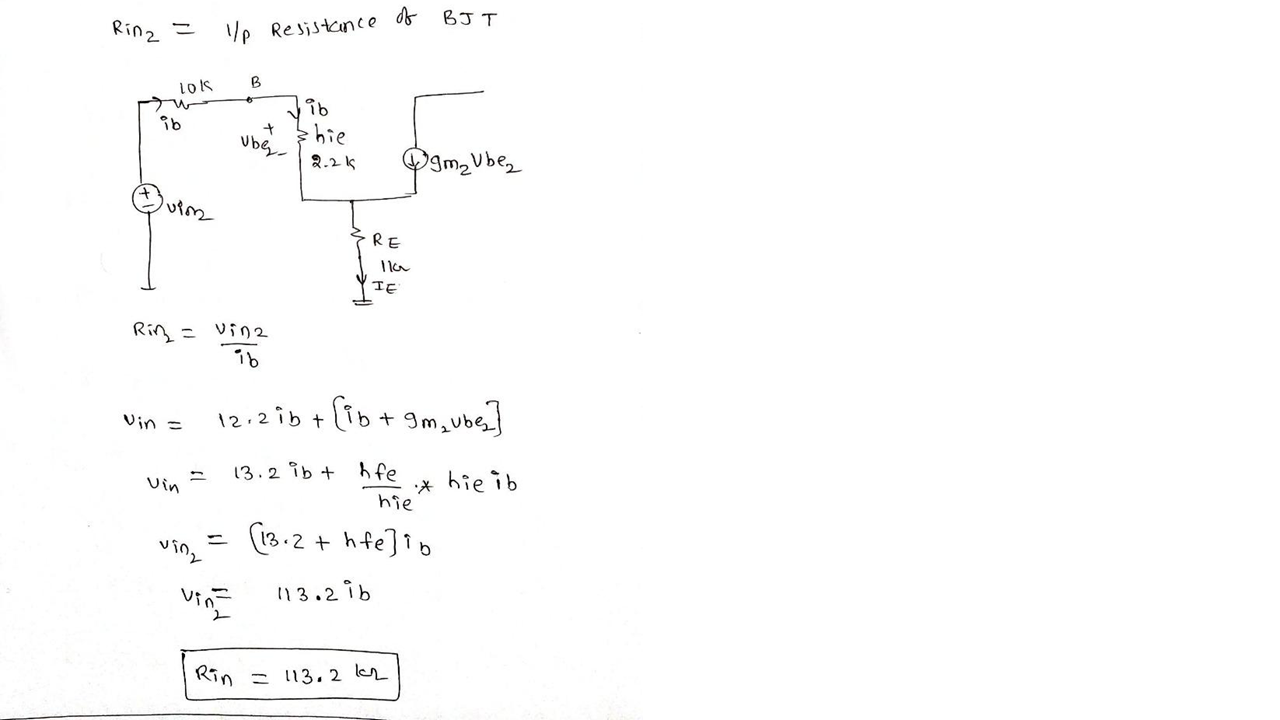 Rin2 = I/p Resistance of BJT
10K B
ib
ib
+
Vbe2
-
hie
2.2k
gm2Vbe2
+
-
Vin2
RE
1kΩ
IE
Rin2 = Vin2
ib
Vin = 12.2 ib + [ib + gm2vbe2]
Vin = 13.2 ib + hfe
hie .* hie ib
Vin2 = [13.2 + hfe] ib
Vin2 = 113.2 ib
Rin = 113.2 kΩ